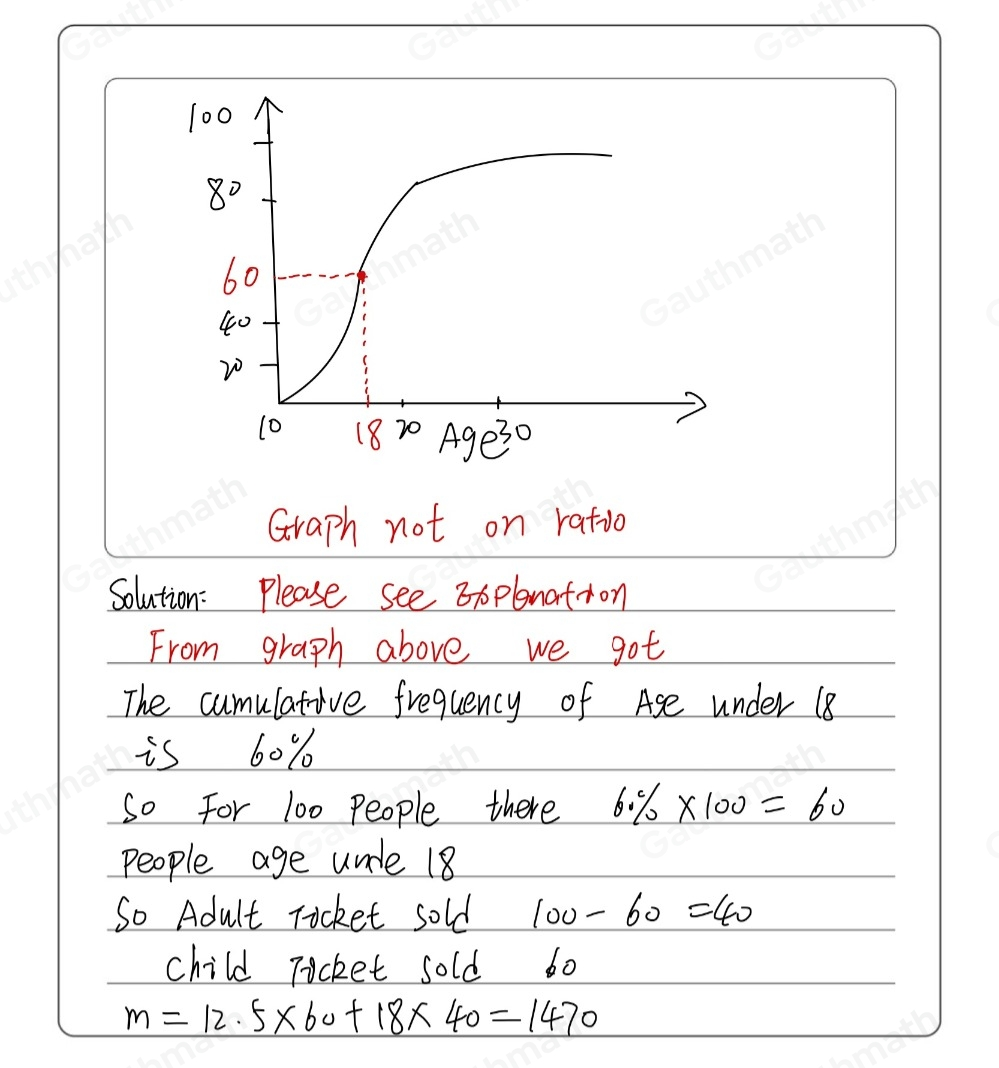 100
80
60
40
20
10 18 20 Age 30
Graph not on ratio
Solution: Please see Explanation
From graph above we got
The cumulative frequency of Age under 18
is 60%
So For 100 People there 60% × 100 = 60
People age unde 18
So Adult Ticket sold 100 - 60 = 40
Child Ticket sold 60
m = 12.5 × 60 + 18 × 40 = 1470
Gauthmath